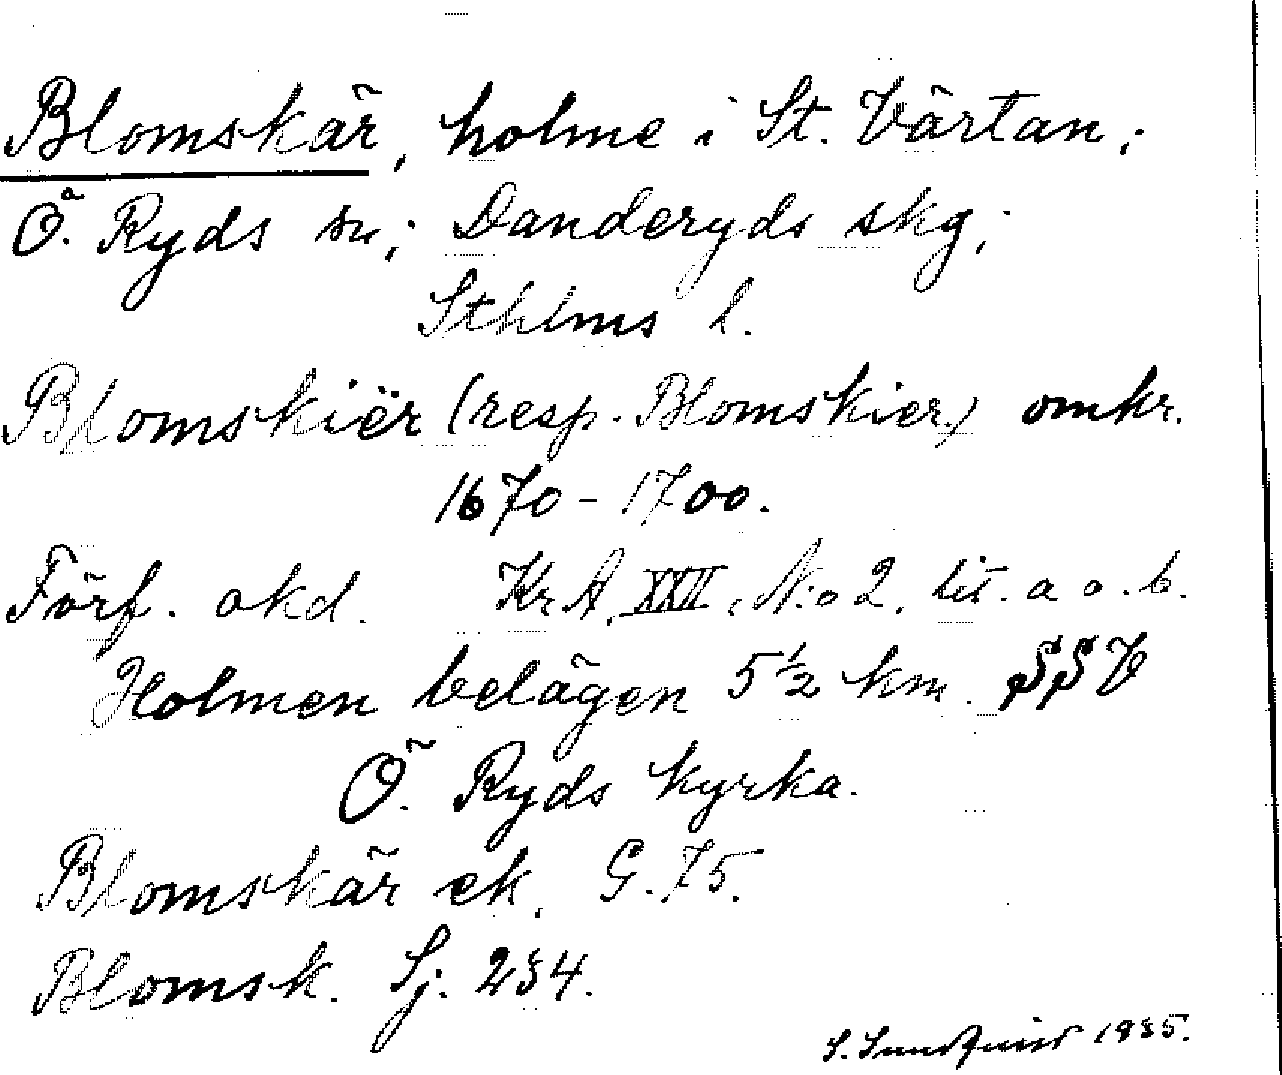 Blomskär, holme i St. Värtan;
Ö. Ryds sn; Danderyds skg;
Sthlms l.
Blomskiër (resp. Blomskier) omkr.
1670-1700.
Förf. okd. Kr A. XXII. No 2. lit. a o. b.
Holmen belägen 5 1/2 km. SSV
Ö. Ryds kyrka.
Blomskär ek. G. 75.
Blomsk. Sj. 234.
S. Sundquist 1935.